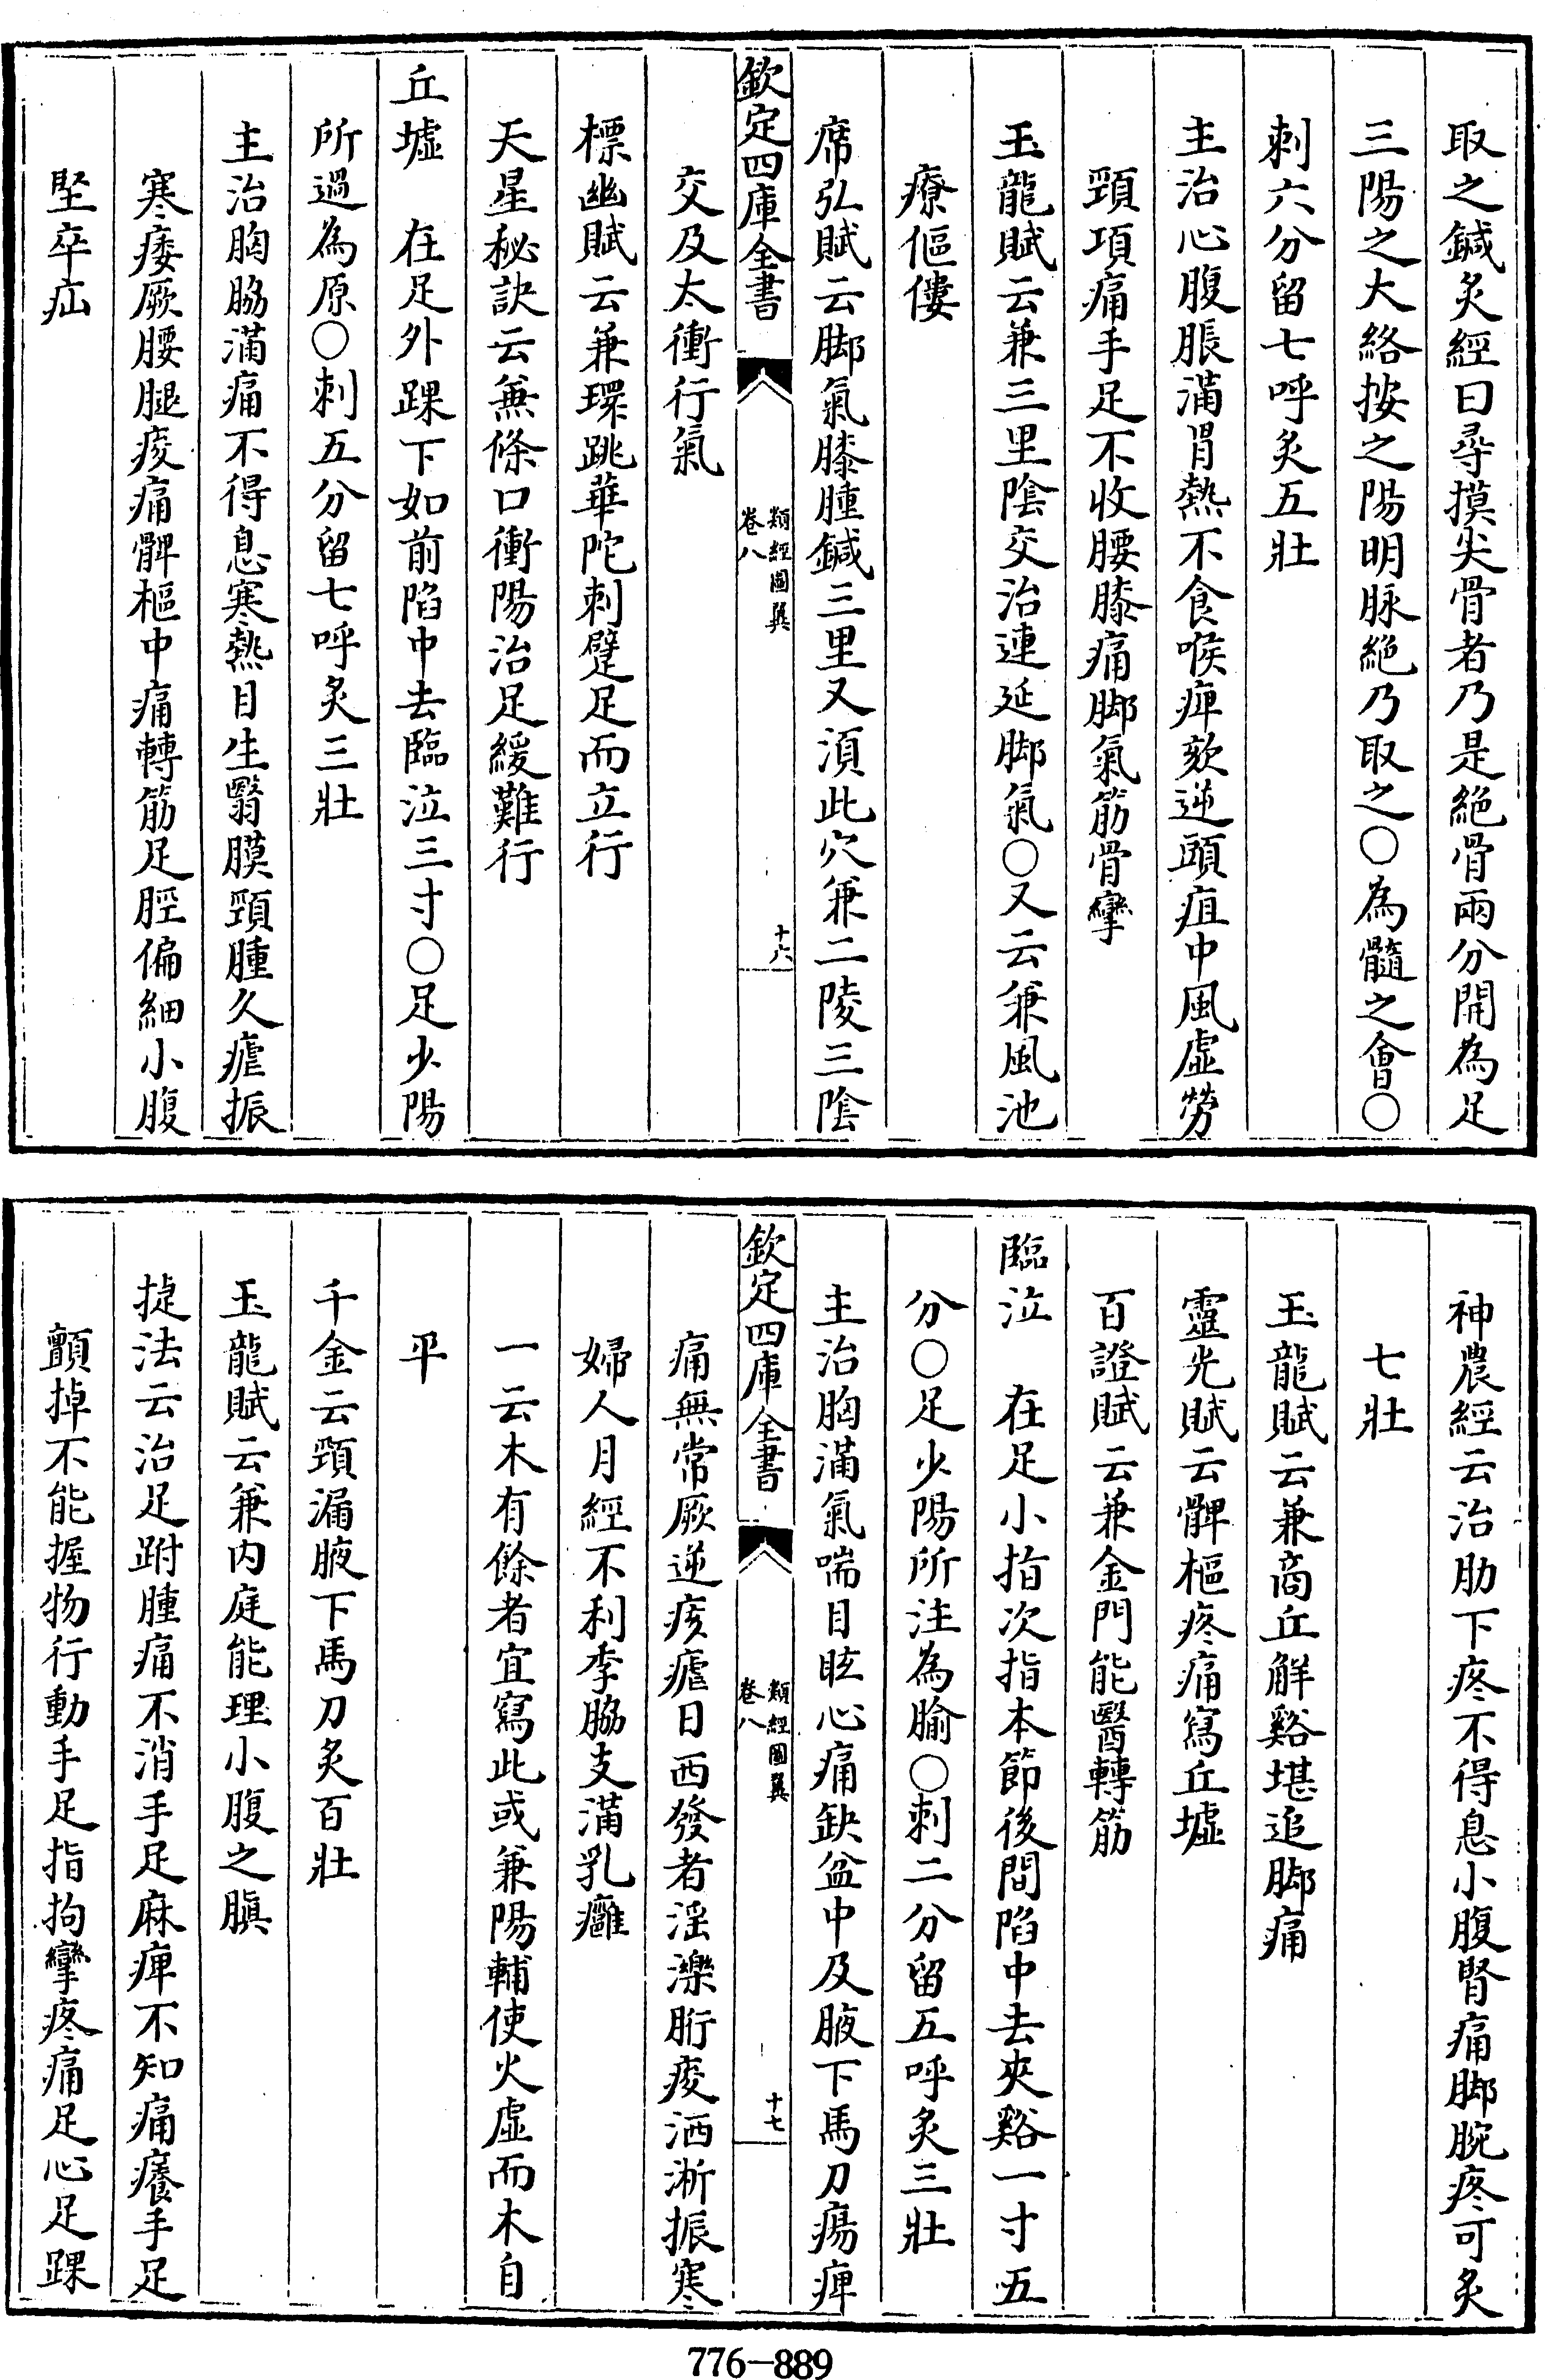 取之鍼灸經曰尋摸尖骨者乃是絶骨兩分開為足
三陽之大絡按之陽明脉絶乃取之○為髓之會○
刺六分留七呼灸五壯
主治心腹脹滿胃熱不食喉痺欬逆頭疽中風虛勞
頸項痛手足不收腰膝痛脚氣筋骨攣
玉龍賦云兼三里陰交治連延脚氣○又云兼風池
療傴僂
席弘賦云脚氣膝腫鍼三里又湏此穴兼二陵三陰
欽定四庫全書
類經圖翼
卷八
十六
交及太衝行氣
標幽賦云兼環跳華陀刺躄足而立行
天星秘訣云無條口衝陽治足緩難行
丘墟　在足外踝下如前陷中去臨泣三寸○足少陽
所過為原○刺五分留七呼灸三壯
主治胸脇滿痛不得息寒熱目生翳膜頸腫久瘧振
寒痿厥腰腿痠痛髀樞中痛轉筋足脛偏細小腹
堅卒疝
神農經云治肋下疼不得息小腹腎痛脚腕疼可灸
七壯
玉龍賦云兼商丘解谿堪追脚痛
靈光賦云髀樞疼痛寫丘墟
百證賦云兼金門能醫轉筋
臨泣　在足小指次指本節後間陷中去夾谿一寸五
分○足少陽所注為腧○刺二分留五呼灸三壯
主治胸滿氣喘目眩心痛缺盆中及腋下馬刀瘍痺
欽定四庫全書
類經圖翼
卷八
十七
痛無常厥逆痎瘧日西發者淫濼胻痠洒淅振寒
婦人月經不利季脇支滿乳癰
一云木有餘者宜寫此或兼陽輔使火虛而木自
平
千金云頸漏腋下馬刀灸百壯
玉龍賦云兼内庭能理小腹之䐜
捷法云治足跗腫痛不消手足麻痺不知痛癢手足
顫掉不能握物行動手足指拘攣疼痛足心足踝
776—889